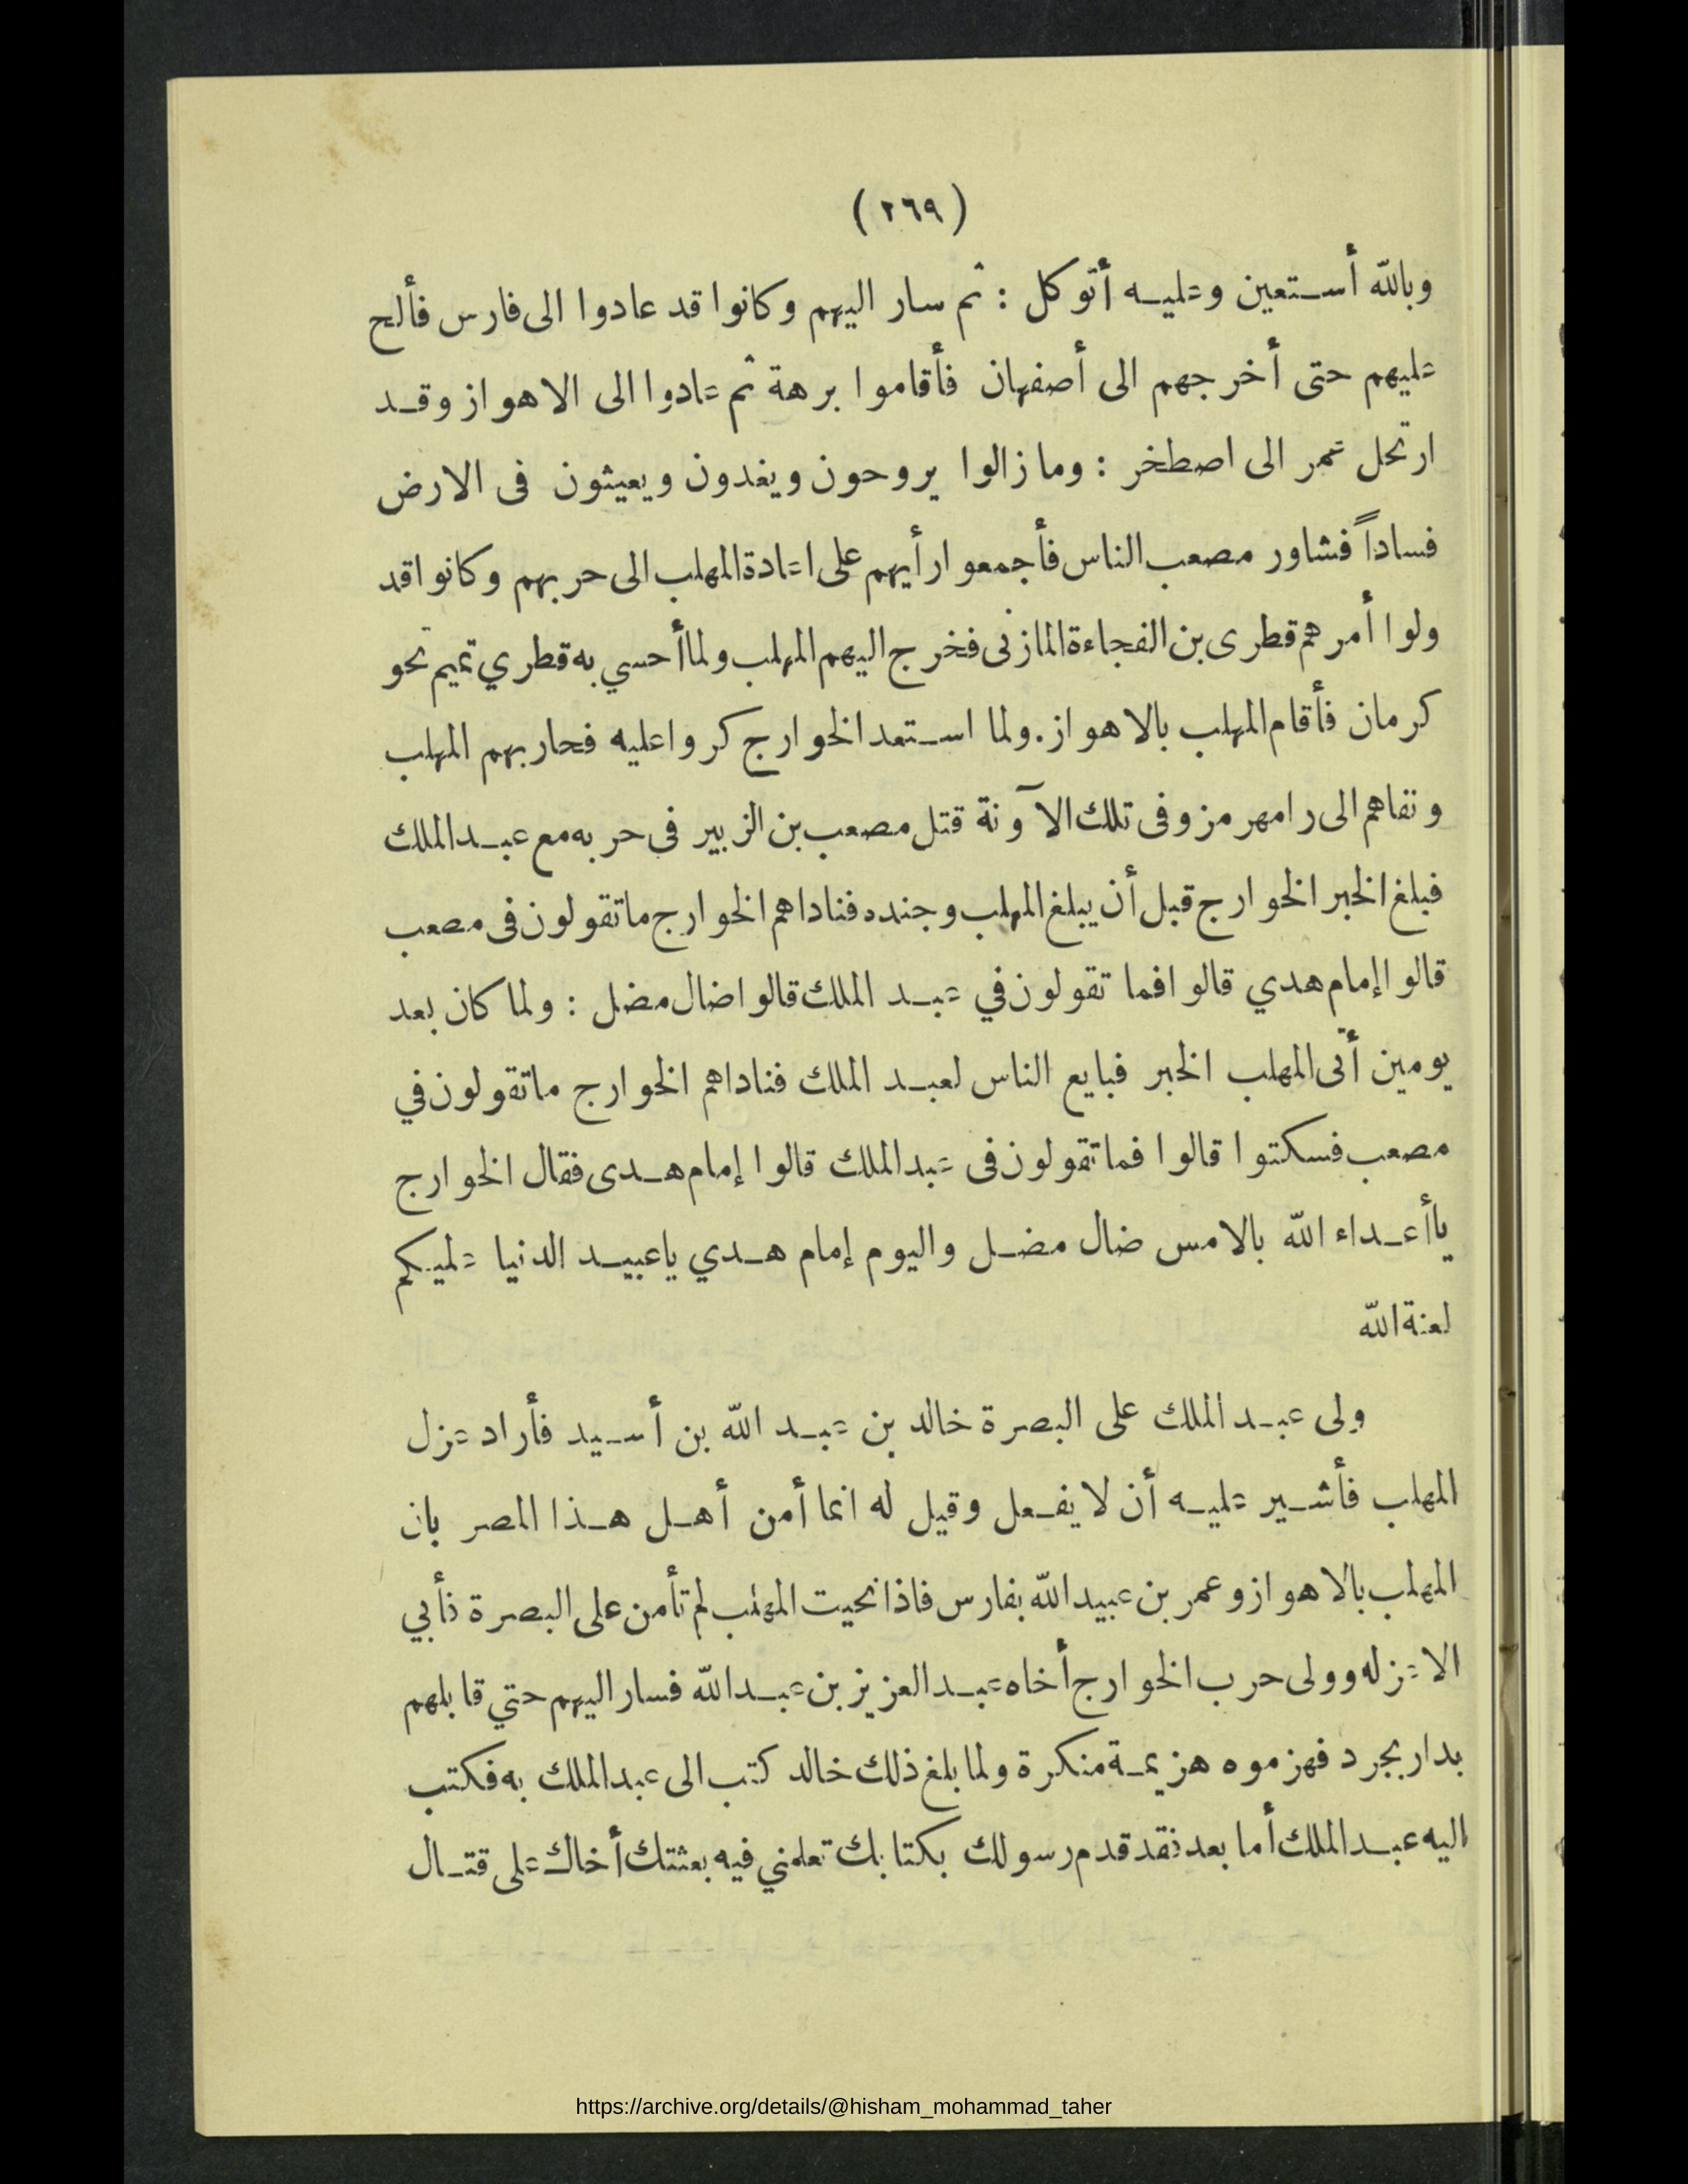 (٢٦٩)
وبالله أستعين وعليه أتوكل : ثم سار اليهم وكانوا قد عادوا الى فارس فألح
عليهم حتى أخرجهم الى أصفهان فأقاموا برهة ثم عادوا الى الاهواز وقد
ارتحل عمر الى اصطخر : وما زالوا يروحون ويغدون ويعيثون فى الارض
فساداً فشاور مصعب الناس فأجمعوا رأيهم على اعادة المهلب الى حربهم وكانوا قد
ولوا أمرهم قطرى بن الفجاءة المازنى فخرج اليهم المهلب ولما أحسي به قطري تميم نحو
كرمان فأقام المهلب بالاهواز. ولما استعد الخوارج كروا عليه فحاربهم المهلب
ونفاهم الى رامهرمز وفى تلك الآونة قتل مصعب بن الزبير فى حربه مع عبد الملك
فبلغ الخبر الخوارج قبل أن يبلغ المهلب وجنده فناداهم الخوارج ما تقولون فى مصعب
قالوا إمام هدي قالوا فما تقولون في عبد الملك قالوا ضال مضل : ولما كان بعد
يومين أتى المهلب الخبر فبايع الناس لعبد الملك فناداهم الخوارج ما تقولون في
مصعب فسكتوا قالوا فما تقولون فى عبد الملك قالوا إمام هدى فقال الخوارج
يا أعداء الله بالامس ضال مضل واليوم إمام هدي يا عبيد الدنيا عليكم
لعنة الله
ولى عبد الملك على البصرة خالد بن عبد الله بن أسيد فأراد عزل
المهلب فأشير عليه أن لا يفعل وقيل له انما أمن أهل هذا المصر بان
المهلب بالاهواز وعمر بن عبيد الله بفارس فاذا نحيت المهلب لم تأمن على البصرة فأبي
الا عزله وولى حرب الخوارج أخاه عبد العزيز بن عبد الله فسار اليهم حتي قابلهم
بدار بجرد فهزموه هزيمة منكرة ولما بلغ ذلك خالد كتب الى عبد الملك به فكتب
اليه عبد الملك أما بعد فقد قدم رسولك بكتابك تعلمني فيه بعثتك أخاك على قتال
https://archive.org/details/@hisham_mohammad_taher